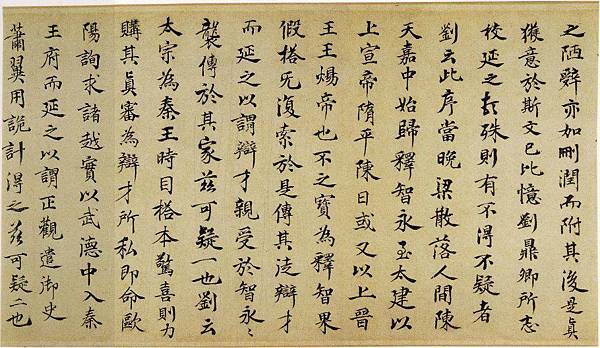 之陋辭亦加刪潤而附其後是真
獲意於斯文已比憶劉鼎卿所志
校延之殊則有不得不疑者
劉云此序當晚梁散落人間陳
天嘉中始歸釋智永至太建以
上宣帝隋平陳日或又以上晉
王王煬帝也不之寶為釋智果
假搨旡復索於是傳其徒辯才
而延之以謂辯才親受於智永〻
襲傳於其家茲可疑一也劉云
太宗為秦王時目搨本驚喜則力
購其真審為辯才所私即命歐
陽詢求諸越實以武德中入秦
王府而延之以謂正觀遣御史
蕭翼用詭計得之茲可疑二也